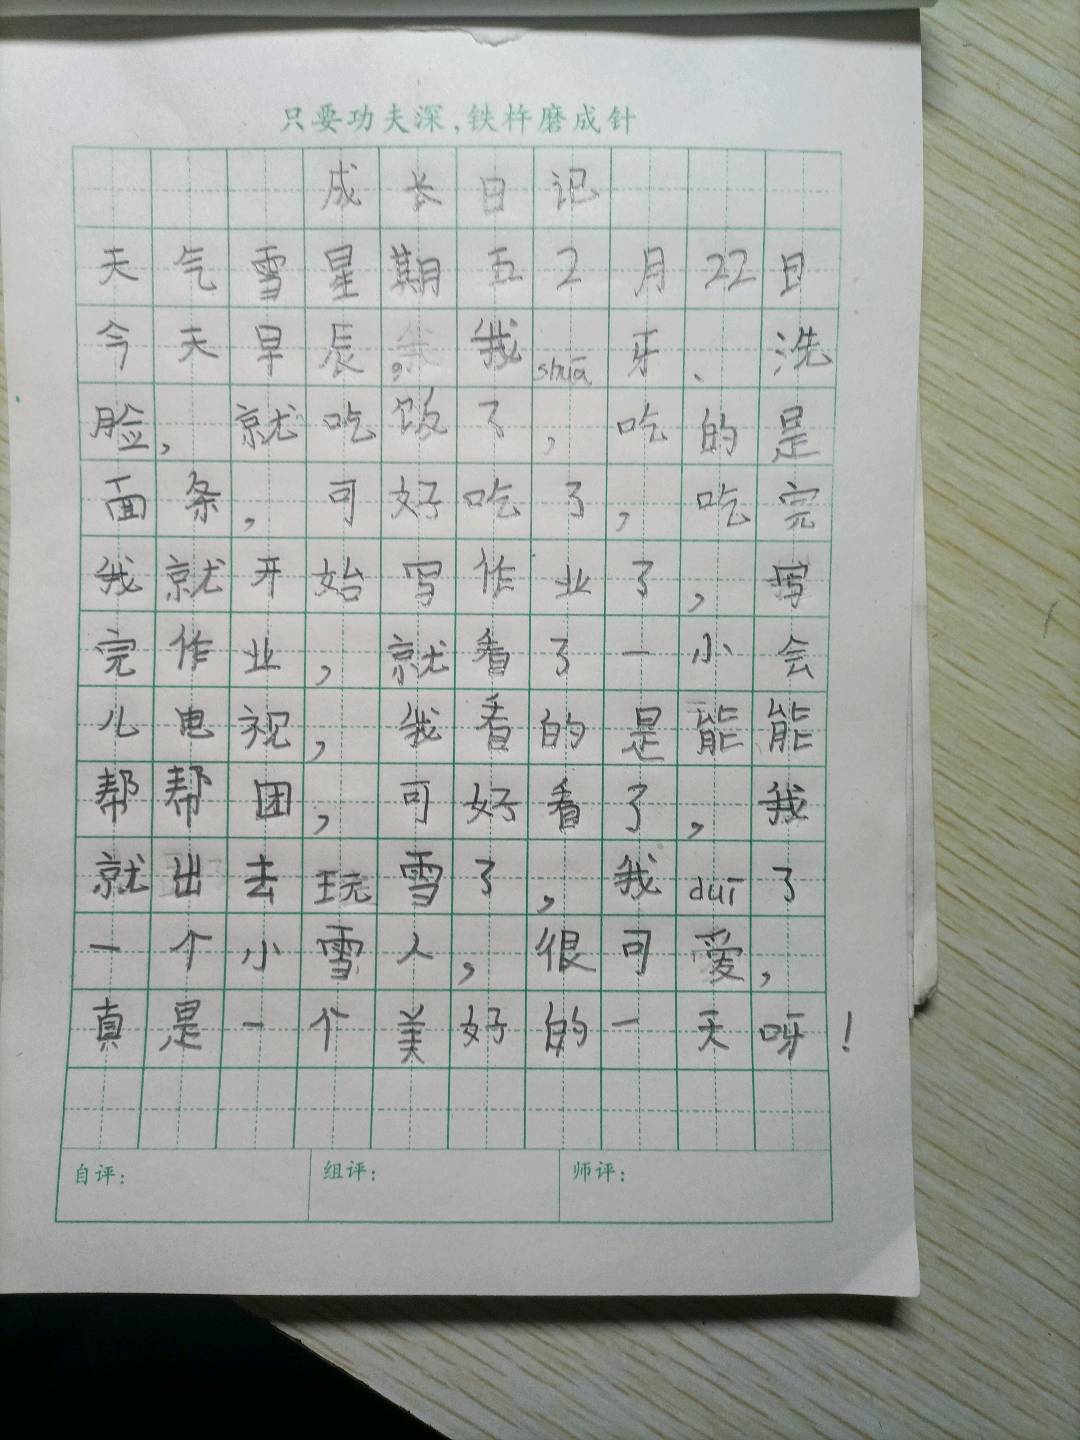 只要功夫深,铁杵磨成针
成长日记
天气雪星期五2月22日
今天早辰,我shuā牙、洗
脸,就吃饭了,吃的是
面条,可好吃了,吃完
我就开始写作业了,写
完作业,就看了一小会
儿电视,我看的是能能
帮帮团,可好看了,我
就出去玩雪了,我duī了
一个小雪人,很可爱,
真是一个美好的一天呀!
自评: 组评: 师评: